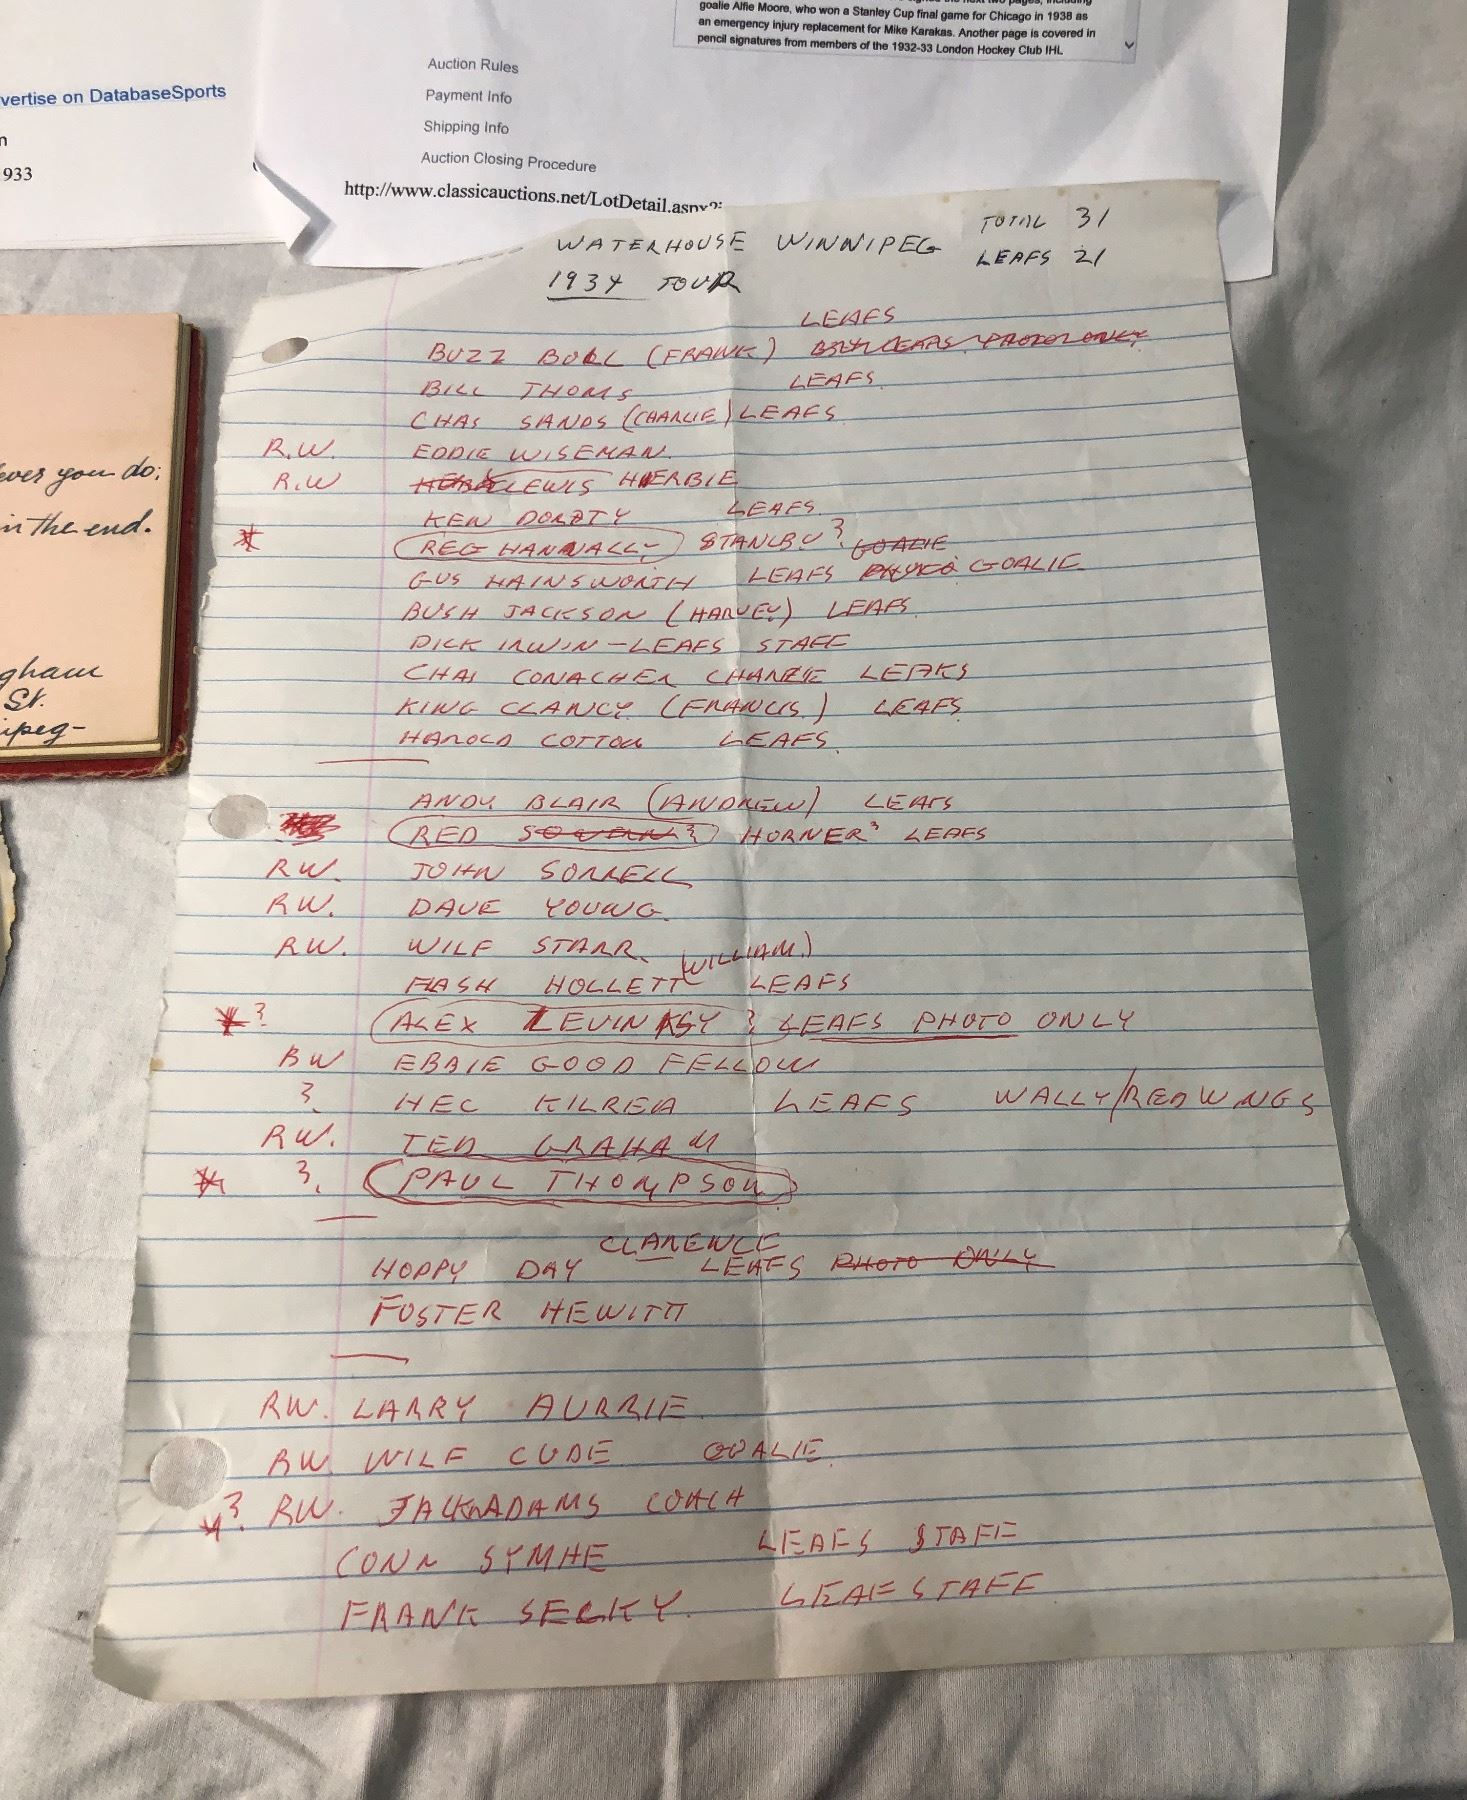 goalie Alfie Moore, who won a Stanley Cup final game for Chicago in 1938 as
an emergency injury replacement for Mike Karakas. Another page is covered in
pencil signatures from members of the 1932-33 London Hockey Club IHL
Auction Rules
Payment Info
Shipping Info
Auction Closing Procedure
http://www.classicauctions.net/LotDetail.aspx?i
vertise on DatabaseSports
n
933
ever you do;
in the end.
gham
St.
ipeg-
WATERHOUSE WINNIPEG TOTAL 31
1934 TOUR LEAFS 21
LEAFS
BUZZ BOLL (FRANK)
BILL THOMS LEAFS
CHAS SANDS (CHARLIE) LEAFS
R.W. EDDIE WISEMAN.
R.W LEWIS HERBIE
KEN DORATY LEAFS
* REG HANNALLY STANLBU? GOALIE
GUS HAINSWORTH LEAFS GOALIE
BUSH JACKSON (HARVEY) LEAFS
DICK IRWIN - LEAFS STAFF
CHAS CONACHER CHARLIE LEAFS
KING CLANCY (FRANCIS.) LEAFS
HAROLD COTTON LEAFS.
ANDY BLAIR (ANDREW) LEAFS
RED HORNER? LEAFS
RW. JOHN SORRELL
RW. DAVE YOUNG.
RW. WILF STARR.
FLASH HOLLETT (WILLIAM.) LEAFS
*? ALEX LEVINKSY ? LEAFS PHOTO ONLY
RW EBBIE GOOD FELLOW
? HEC KILREA LEAFS WALLY/RED WINGS
RW. TED GRAHAM
* ?. PAUL THOMPSON
CLARENCE
HOPPY DAY LEAFS PHOTO ONLY
FOSTER HEWITT
RW. LARRY AURRIE.
RW WILF CUDE GOALIE.
*?. RW. JACK ADAMS COACH
CONN SYMHE LEAFS STAFF
FRANK SELKY. LEAF STAFF